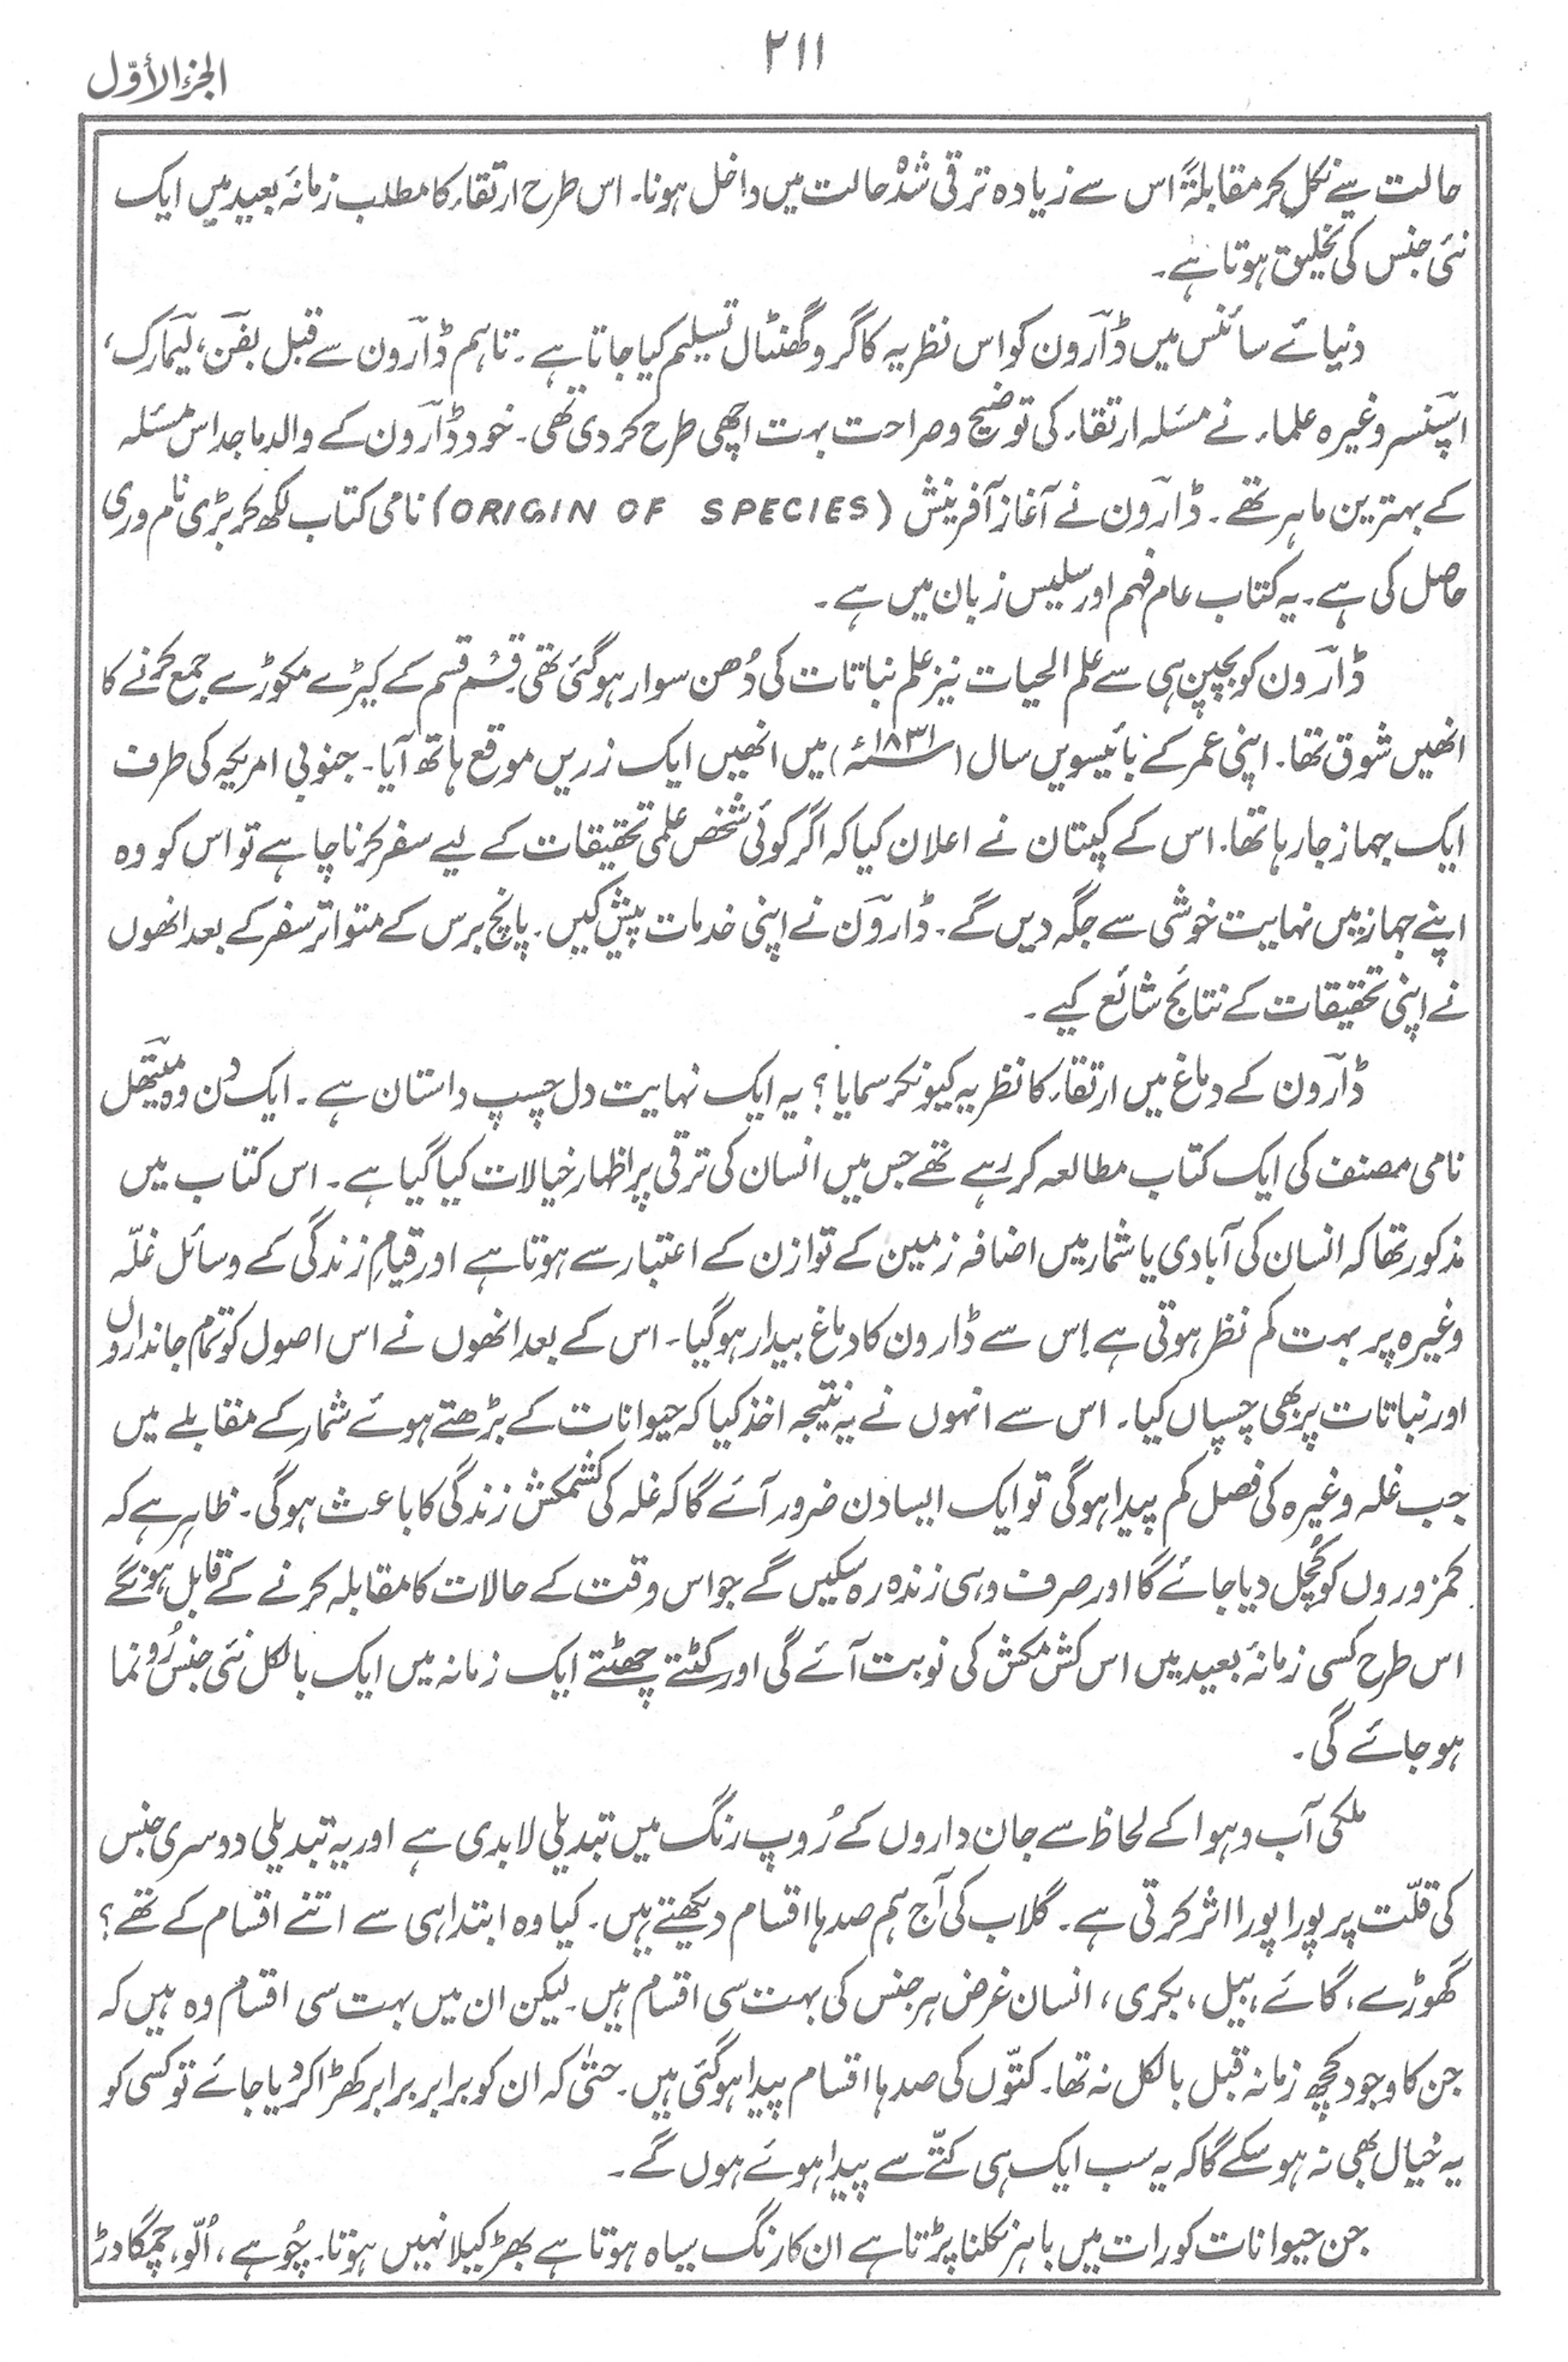 ۲۱۱
الجزء الأوّل
حالت سے نکل کر مقابلۃً اس سے زیادہ ترقی شدہ حالت میں داخل ہونا۔ اس طرح ارتقاء کا مطلب زمانۂ بعید میں ایک
نئی جنس کی تخلیق ہوتا ہے۔
دنیائے سائنس میں ڈارون کو اس نظریہ کا گرو گھنٹال تسلیم کیا جاتا ہے۔ تاہم ڈارون سے قبل بفن، لیمارک،
اسپنسر وغیرہ علماء نے مسئلہ ارتقاء کی توضیح و صراحت بہت اچھی طرح کر دی تھی۔ خود ڈارون کے والد ماجد اس مسئلہ
کے بہترین ماہر تھے۔ ڈارون نے آغاز آفرینش (ORIGIN OF SPECIES) نامی کتاب لکھ کر بڑی نام وری
حاصل کی ہے۔ یہ کتاب عام فہم اور سلیس زبان میں ہے۔
ڈارون کو بچپن ہی سے علم الحیات نیز علم نباتات کی دُھن سوار ہو گئی تھی۔ قسم قسم کے کیڑے مکوڑے جمع کرنے کا
انھیں شوق تھا۔ اپنی عمر کے بائیسویں سال (۱۸۳۱ء) میں انھیں ایک زریں موقع ہاتھ آیا۔ جنوبی امریکہ کی طرف
ایک جہاز جا رہا تھا۔ اس کے کپتان نے اعلان کیا کہ اگر کوئی شخص علمی تحقیقات کے لیے سفر کرنا چاہے تو اس کو وہ
اپنے جہاز میں نہایت خوشی سے جگہ دیں گے۔ ڈارون نے اپنی خدمات پیش کیں۔ پانچ برس کے متواتر سفر کے بعد انھوں
نے اپنی تحقیقات کے نتائج شائع کیے۔
ڈارون کے دماغ میں ارتقاء کا نظریہ کیونکر سمایا؟ یہ ایک نہایت دل چسپ داستان ہے۔ ایک دن وہ میتھل
نامی مصنف کی ایک کتاب مطالعہ کر رہے تھے جس میں انسان کی ترقی پر اظہار خیالات کیا گیا ہے۔ اس کتاب میں
مذکور تھا کہ انسان کی آبادی یا شمار میں اضافہ زمین کے توازن کے اعتبار سے ہوتا ہے اور قیامِ زندگی کے وسائل غلّہ
وغیرہ پر بہت کم نظر ہوتی ہے۔ اس سے ڈارون کا دماغ بیدار ہو گیا۔ اس کے بعد انھوں نے اس اصول کو تمام جانداروں
اور نباتات پر بھی چسپاں کیا۔ اس سے انہوں نے یہ نتیجہ اخذ کیا کہ حیوانات کے بڑھتے ہوئے شمار کے مقابلے میں
جب غلہ وغیرہ کی فصل کم پیدا ہوگی تو ایک ایسا دن ضرور آئے گا کہ غلہ کی کشمکش زندگی کا باعث ہوگی۔ ظاہر ہے کہ
کمزوروں کو کُچل دیا جائے گا اور صرف وہی زندہ رہ سکیں گے جو اس وقت کے حالات کا مقابلہ کرنے کے قابل ہونگے
اس طرح کسی زمانۂ بعید میں اس کش مکش کی نوبت آئے گی اور کٹتے چھٹتے ایک زمانہ میں ایک بالکل نئی جنس رُونما
ہو جائے گی۔
ملکی آب و ہوا کے لحاظ سے جان داروں کے رُوپ رنگ میں تبدیلی لابدی ہے اور یہ تبدیلی دوسری جنس
کی قلّت پر پورا پورا اثر کرتی ہے۔ گلاب کی آج ہم صدہا اقسام دیکھتے ہیں۔ کیا وہ ابتدا ہی سے اتنے اقسام کے تھے؟
گھوڑے، گائے، بیل، بکری، انسان غرض ہر جنس کی بہت سی اقسام ہیں۔ لیکن ان میں بہت سی اقسام وہ ہیں کہ
جن کا وجود کچھ زمانہ قبل بالکل نہ تھا۔ کتوّں کی صدہا اقسام پیدا ہو گئی ہیں۔ حتیٰ کہ ان کو برابر برابر کھڑا کر دیا جائے تو کسی کو
یہ خیال بھی نہ ہو سکے گا کہ یہ سب ایک ہی کتّے سے پیدا ہوئے ہوں گے۔
جن حیوانات کو رات میں باہر نکلنا پڑتا ہے ان کا رنگ سیاہ ہوتا ہے بھڑکیلا نہیں ہوتا۔ چُوہے، اُلّو، چمگادڑ